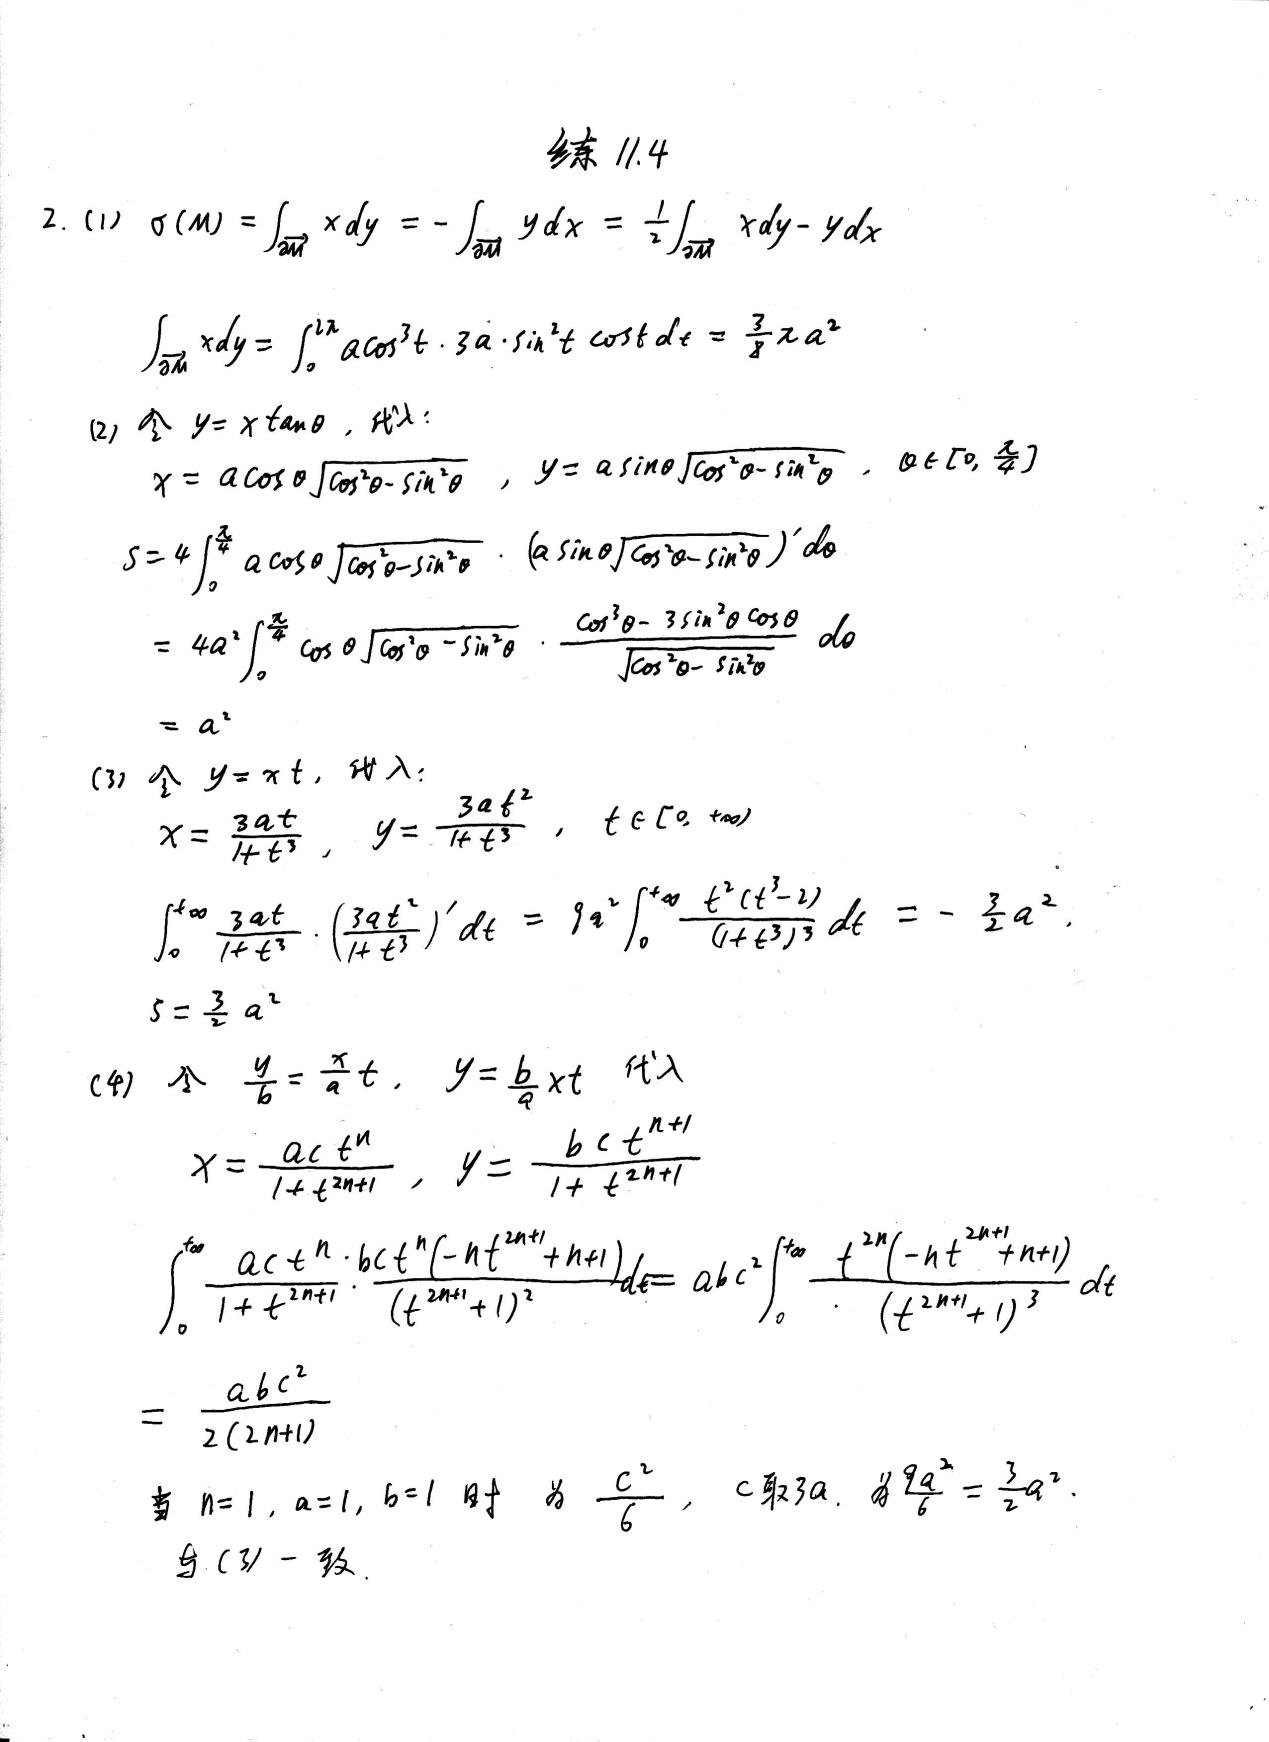 练 11.4
2. (1) σ(M) = ∫_{∂M→} x dy = - ∫_{∂M→} y dx = 1/2 ∫_{∂M→} xdy - ydx
∫_{∂M→} xdy = ∫_0^{2π} a cos³t · 3a · sin²t cost dt = 3/8 π a²
(2) 令 y = x tanθ , 代入:
x = a cosθ √(cos²θ - sin²θ) , y = a sinθ √(cos²θ - sin²θ) , θ ∈ [0, π/4]
S = 4 ∫_0^{π/4} a cosθ √(cos²θ - sin²θ) · (a sinθ √(cos²θ - sin²θ))' dθ
= 4a² ∫_0^{π/4} cosθ √(cos²θ - sin²θ) · (cos³θ - 3 sin²θ cosθ)/√(cos²θ - sin²θ) dθ
= a²
(3) 令 y = xt , 代入:
x = 3at/(1+t³) , y = 3at²/(1+t³) , t ∈ [0, +∞)
∫_0^{+∞} 3at/(1+t³) · (3at²/(1+t³))' dt = 9a² ∫_0^{+∞} t²(t³-2)/(1+t³)³ dt = - 3/2 a² .
S = 3/2 a²
(4) 令 y/b = x/a t , y = b/a xt 代入
x = act^n/(1+t^{2n+1}) , y = bct^{n+1}/(1+t^{2n+1})
∫_0^{+∞} act^n/(1+t^{2n+1}) · bct^n(-nt^{2n+1}+n+1)/(t^{2n+1}+1)² dt = abc² ∫_0^{+∞} t^{2n}(-nt^{2n+1}+n+1)/(t^{2n+1}+1)³ dt
= abc²/2(2n+1)
当 n=1, a=1, b=1 时 为 c²/6 , c取3a. 为 9a²/6 = 3/2 a² .
与(3)一致.